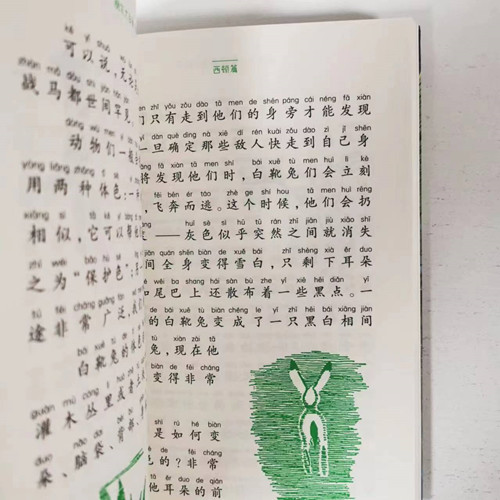 kě yǐ shuō wú
可以说，无
zhàn mǎ dōu shì jiān hǎn jiàn
战马都世间罕见
dòng wù men yì
动物们一
yòng liǎng zhǒng tǐ sè
用两种体色：一
xiāng sì
相似，它可以帮
zhī wéi bǎo hù sè
之为“保护色”；
tú fēi cháng guǎng fàn
途非常广泛，我们
bái xuē tù de tǐ
白靴兔的体
guàn mù cóng lǐ huò zhě
灌木丛里或者
duǒ nǎo dai bèi bù
朵、脑袋、背部、
西顿篇
zhǐ yǒu zǒu dào tā men de shēn páng cái néng fā xiàn
们只有走到他们的身旁才能发现
yí dàn què dìng nà xiē dí rén kuài zǒu dào zì jǐ shēn
一旦确定那些敌人快走到自己身
fā xiàn tā men shí bái xuē tù men huì lì kè
将发现他们时，白靴兔们会立刻
fēi bēn ér táo zhè ge shí hou tā men huì rēng
，飞奔而逃。这个时候，他们会扔
huī sè sì hū tū rán zhī jiān jiù xiāo shī
——灰色似乎突然之间就消失
jiān quán shēn biàn de xuě bái zhǐ shèng xià ěr duo
间全身变得雪白，只剩下耳朵
wěi ba shang hái sàn bù zhe yì xiē hēi diǎn yì
和尾巴上还散布着一些黑点。一
de bái xuē tù biàn chéng le yì zhī hēi bái xiāng jiàn
的白靴兔变成了一只黑白相间
tù xiàn zài tā
兔，现在他
biàn de fēi cháng
变得非常
shì rú hé biàn
是如何变
de fēi cháng
色的？非常
tā ěr duo de qián
他耳朵的前